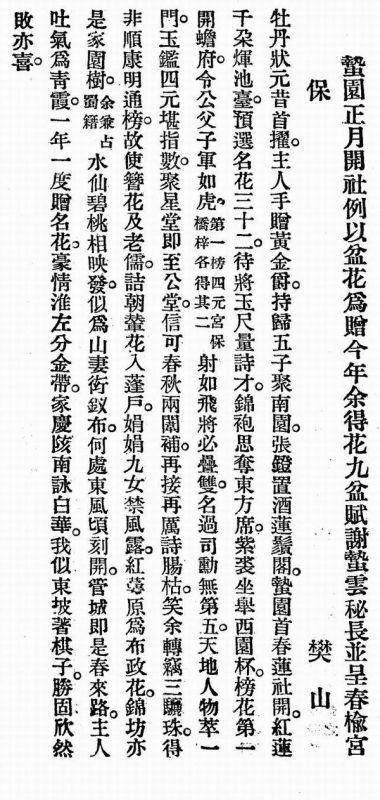 蟄園正月開社例以盆花爲贈今年余得花九盆賦謝蟄雲秘長並呈春楡宮
保　　樊山
牡丹狀元昔首擢。主人手贈黃金爵。持歸五子聚南園。張鐙置酒蓮鬚閣。蟄園首春蓮社開。紅蓮
千朶煇池臺。預選名花三十二。待將玉尺量詩才。錦袍思奪東方席。紫裘坐舉西園杯。榜花第一
開蟾府。令公父子軍如虎。第一榜四元宮保橋梓各得其二射如飛將必疊雙。名過司勳無第五。天地人物萃一
門。玉鑑四元堪指數。聚星堂即至公堂。信可春秋兩闈補。再接再厲詩腸枯。笑余轉竊三驪珠。得
非順康明通榜。故使簪花及老儒。詰朝輦花入蓬戶。娟娟九女禁風露。紅蕚原爲布政花。錦坊亦
是家園樹。余兼占蜀籍水仙碧桃相映發。似爲山妻荷釵布。何處東風頃刻開。管城即是春來路。主人
吐氣爲靑霞。一年一度贈名花。豪情淮左分金帶。家慶陔南詠白華。我似東坡著棋子。勝固欣然
敗亦喜。